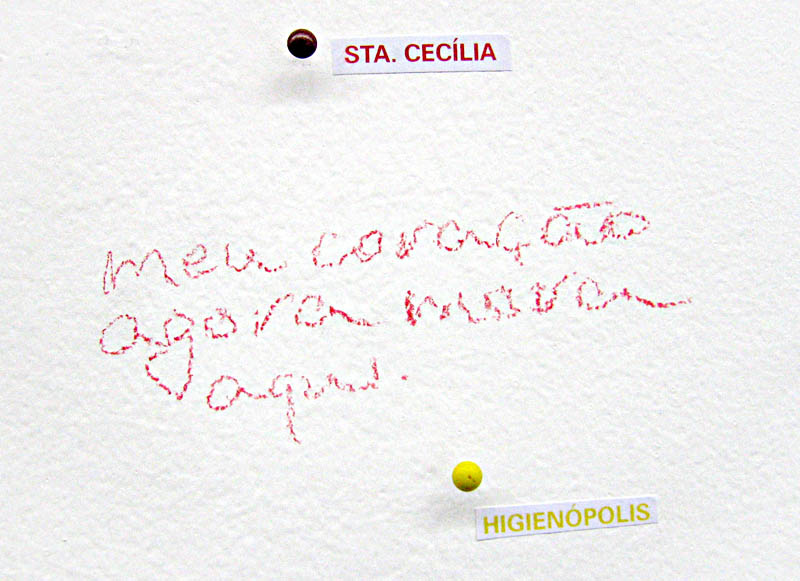 STA. CECÍLIA
meu coração
agora mora
aqui.
HIGIENÓPOLIS